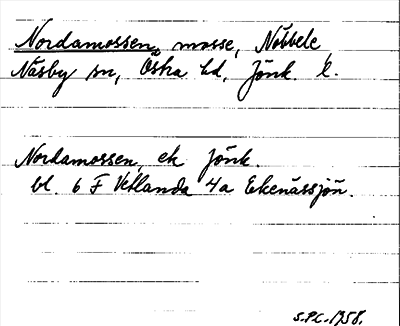 Nordamossen, mosse, Nöbbele,
Näsby sn, Östra hd, Jönk. l.
Nordamossen, ek Jönk.
bl. 6 F Vetlanda 4a Ekenässjön.
S.P.C. 1958.